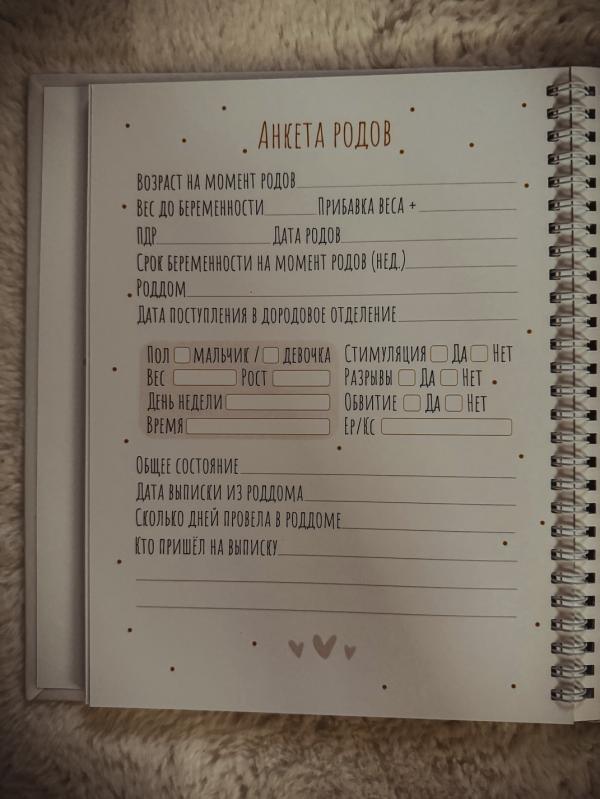 Анкета родов
Возраст на момент родов
Вес до беременности Прибавка веса +
ПДР Дата родов
Срок беременности на момент родов (нед.)
Роддом
Дата поступления в дородовое отделение
Пол мальчик / девочка Стимуляция Да Нет
Вес Рост Разрывы Да Нет
День недели Обвитие Да Нет
Время Ер/Кс
Общее состояние
Дата выписки из роддома
Сколько дней провела в роддоме
Кто пришёл на выписку